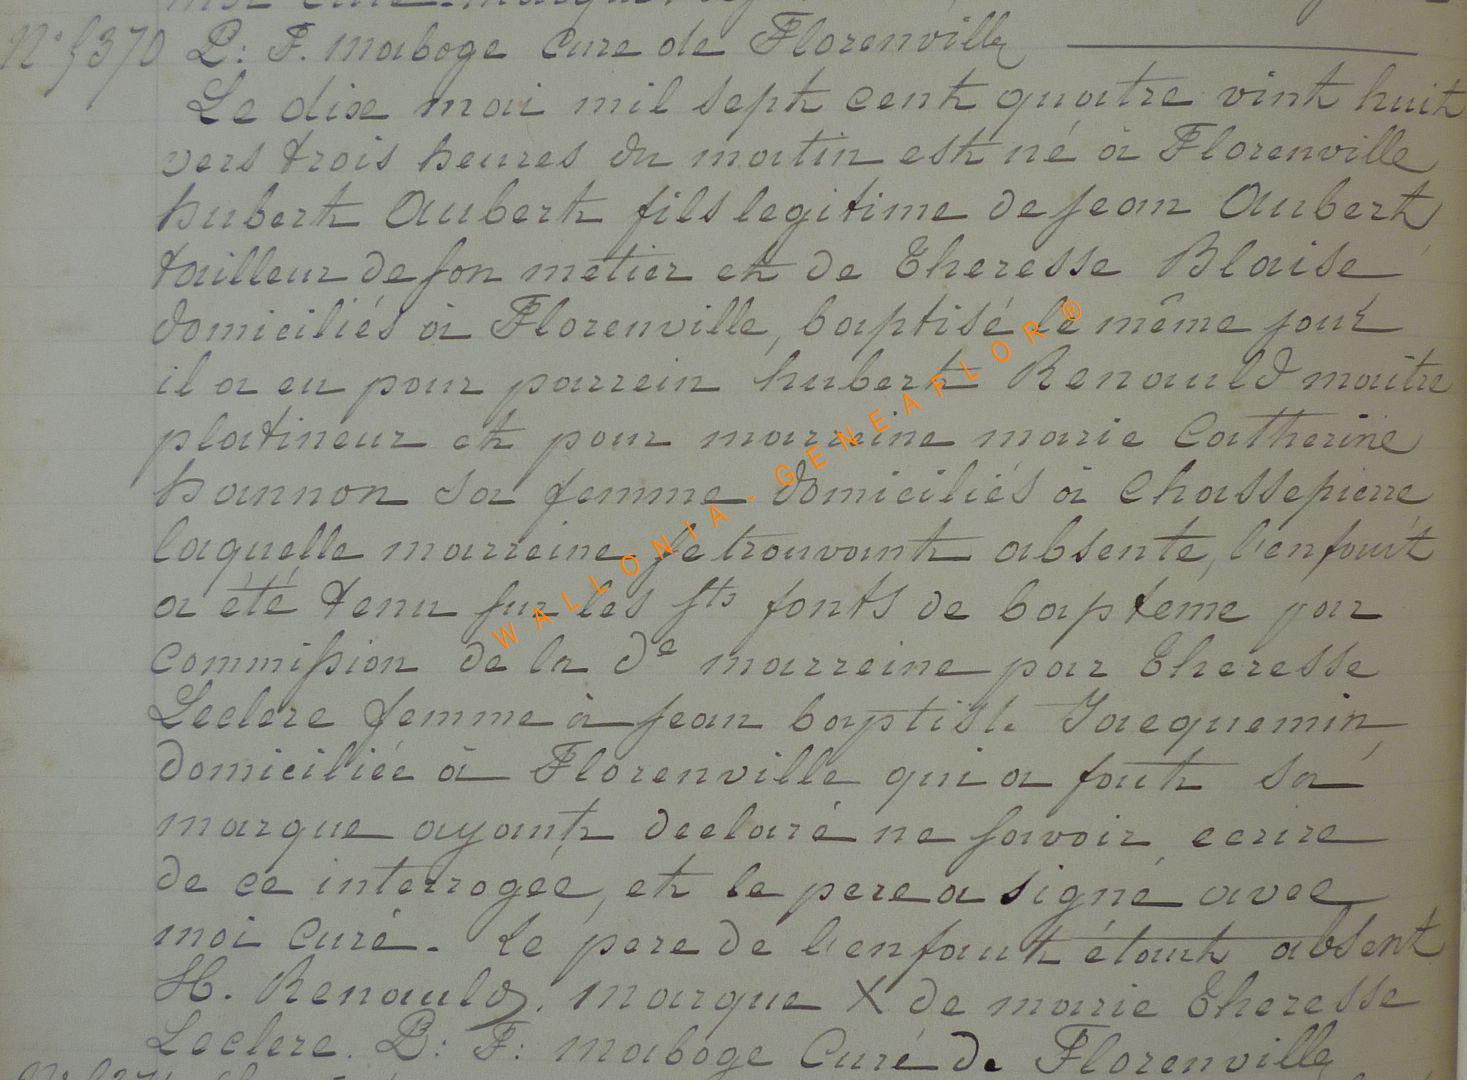 moi curé. marque
N° 5370 P: F. maboge Cure de Florenville
Le dix mai mil sept cent quatre vint huit
vers trois heures du matin est né à Florenville
hubert Aubert fils legitime de jean Aubert
tailleur de son metier et de Theresse Blaise
domiciliés à Florenville, baptisé le même jour
il a eu pour parrein hubert Renauld maitre
platineur et pour marreine marie Catherine
hannon sa femme domiciliés à Chassepierre
laquelle marreine se trouvant absente, l'enfant
a été tenu sur les Sts fonts de bapteme par
commission de la de marreine par Theresse
Leclere femme à jean baptiste Jacquemin
domiciliée à Florenville qui a fait sa
marque ayant declaré ne savoir ecrire
de ce interrogée, et le pere a signé avec
moi Curé. Le pere de l'enfant étant absent
H. Renauld. marque X de marie Theresse
Leclere. P: F: maboge Curé de Florenville
WALLONIA - GENEAFLOR ®